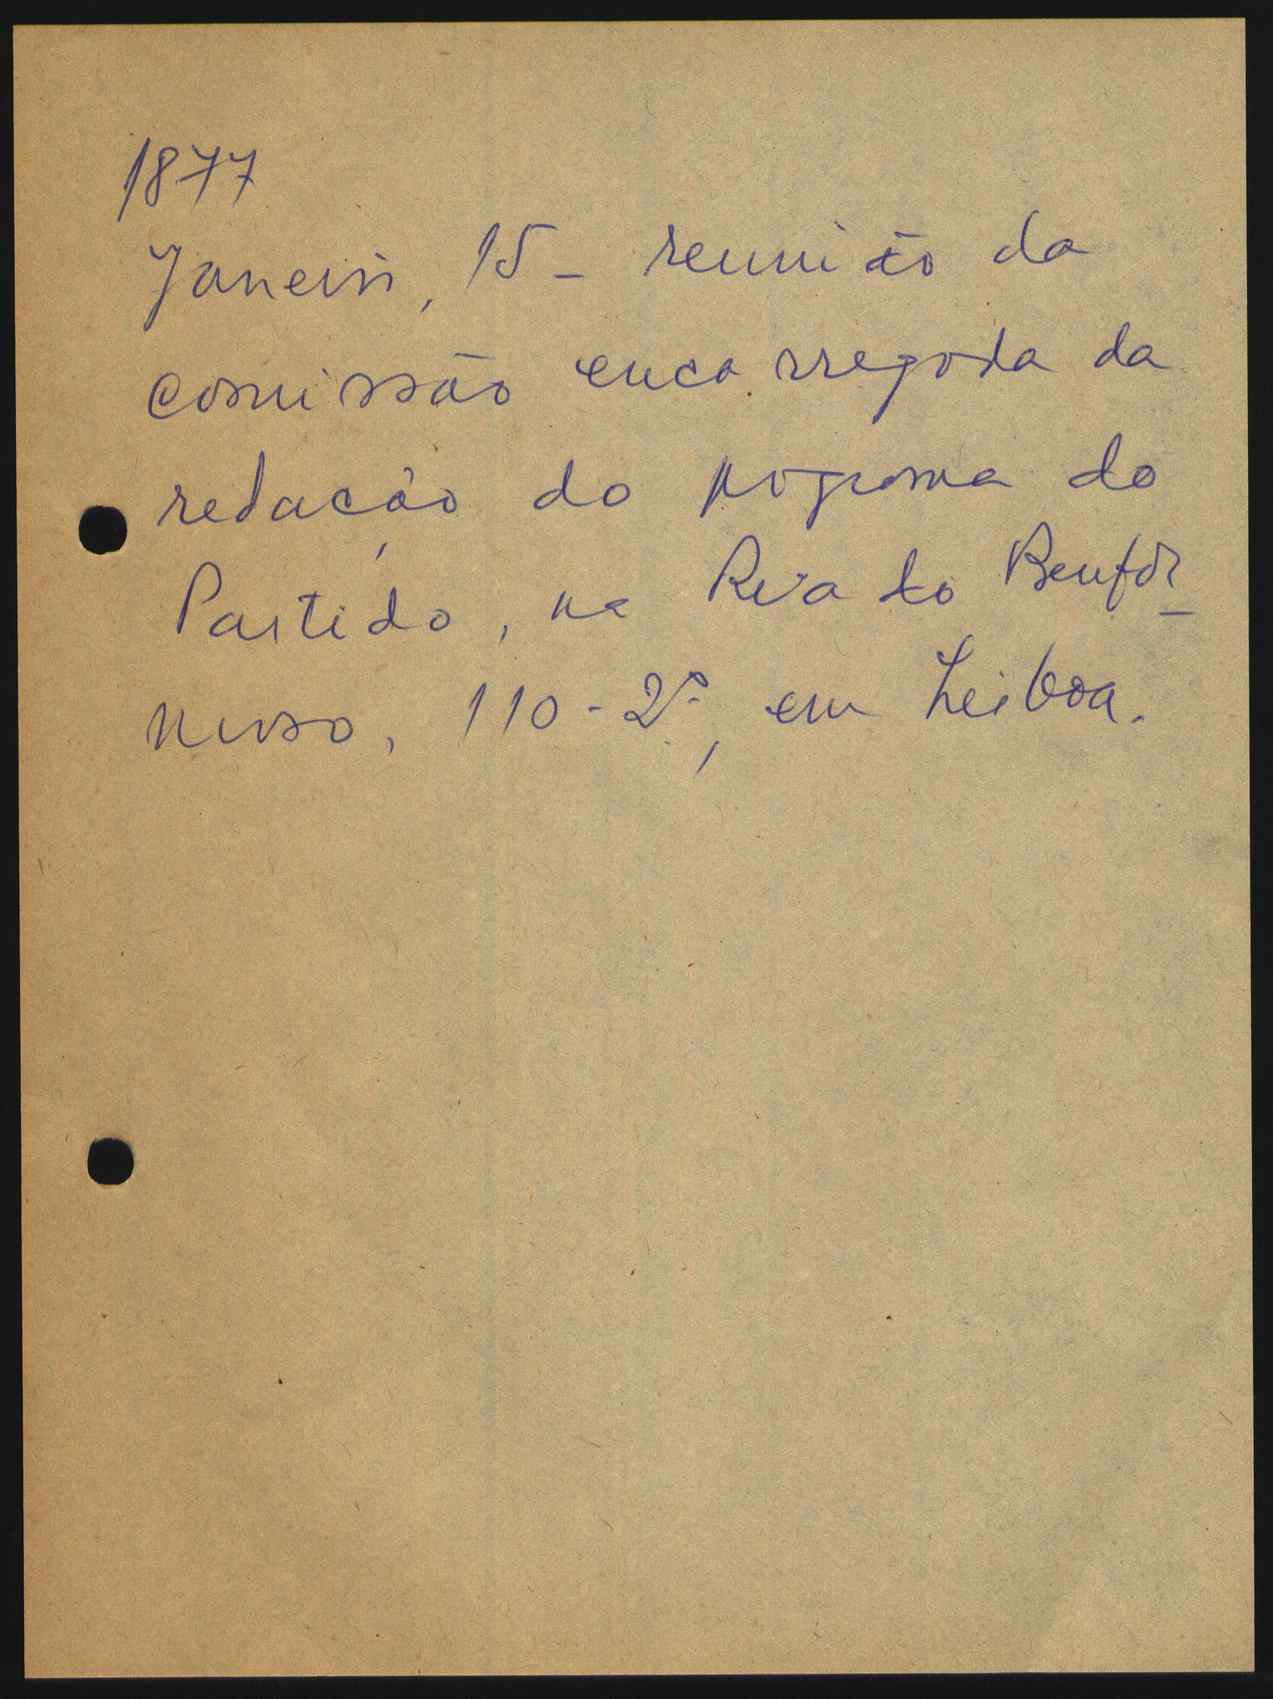 1877
Janeiro, 15 - reunião da
comissão encarregada da
redacção do programa do
Partido, na Rua do Benfor-
moso, 110-2º, em Lisboa.